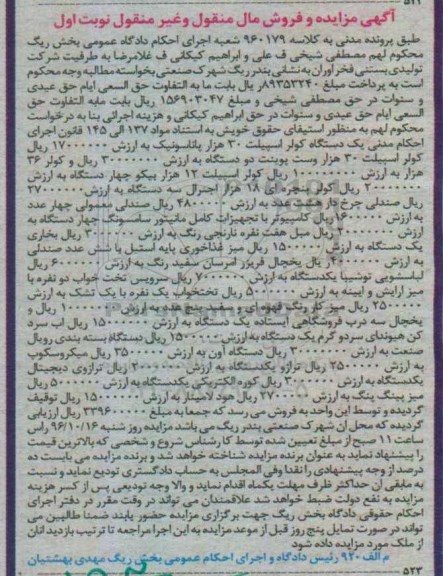 آگهی مزایده و فروش مال منقول و غیر منقول نوبت اول
طبق پرونده مدنی به کلاسه ۹۶۰۱۷۹ر شعبه اجرای احکام دادگاه عمومی بخش ریگ
محکوم لهم مصطفی شیخی ف علی و ابراهیم کیکانی ف غلامرضا به طرفیت شرکت
تولیدی بستنی فخرآوران به نشانی بندر ریگ شهرک صنعتی بخواسته مطالبه وجه محکوم
است به پرداخت مبلغ ۸۹۳۵۳۲۴۰ر ریال بابت ما به التفاوت حق السعی ایام حق عیدی
و سنوات در حق مصطفی شیخی و مبلغ ۱۵۶۹۰۳۰۴۷ ریال بابت مابه التفاوت حق
السعی ایام حق عیدی و سنوات در حق ابراهیم کیکانی و هزینه اجرائی بنا به درخواست
محکوم لهم به منظور استیفای حقوق خویش به استناد مواد ۱۳۷ الی ۱۴۵ قانون اجرای
احکام مدنی یک دستگاه کولر اسپیلت ۳۰ هزار پاناسونیک به ارزش ریال
کولر اسپیلت ۳۰ هزار وست پوینت دو دستگاه به ارزش ریال و کولر ۳۶
هزار به ارزش ریال کولر اسپیلت ۱۲ هزار بیکو چهار دستگاه به ارزش
ریال کولر پنجره ای ۱۸ هزار اجنرال سه دستگاه به ارزش
ریال صندلی چرخ دار هشت عدد به ارزش ریال صندلی معمولی چهار عدد
به ارزش ریال کامپیوتر با تجهیزات کامل مانیتور سامسونگ چهار دستگاه به
ارزش ریال مبل هفت نفره نارنجی رنگ به ارزش ریال بخاری
یک دستگاه به ارزش ریال میز غذاخوری پایه استیل با شش عدد صندلی
به ارزش ریال یخچال فریزر امرسان سفید رنگ به ارزش ریال
لباسشویی توشیبا یکدستگاه به ارزش ریال سرویس تخت خواب دو نفره با
میز آرایش و آیینه به ارزش ریال تختخواب یک نفره با یک تشک به ارزش
ریال میز کار رنگ قهوه ای و سفید پنج عدد به ارزش ریال و
یخچال سه درب فروشگاهی ایستاده یک دستگاه به ارزش ریال آب سرد
کن هیوندای سرد و گرم یک دستگاه به ارزش ریال دستگاه بسته بندی رویال
صنعت به ارزش ریال دستگاه آون به ارزش ریال میکروسکوپ
به ارزش ریال ترازو یکدستگاه به ارزش ریال ترازوی دیجیتال
یکدستگاه به ارزش ریال کوره الکتریکی یکدستگاه به ارزش ریال
میز پینگ پنگ به ارزش ریال هود لامینار به ارزش ریال توقیف
گردیده و توسط این واحد به فروش می رسد که جمعا به مبلغ ریال ارزیابی
گردیده که محل آن شهرک صنعتی بندر ریگ می باشد مزایده روز شنبه ۹۶/۱۰/۱۶ راس
ساعت ۱۱ صبح از مبلغ تعیین شده توسط کارشناس شروع و شخصی که بالاترین قیمت
را پیشنهاد نماید به عنوان برنده مزایده شناخته خواهد شد و برنده مزایده می بایست ده
درصد از وجه پیشنهادی را نقدا وفی المجلس به حساب دادگستری تودیع نماید و نسبت
به مابقی آن حداکثر ظرف مهلت یکماه اقدام نماید و الا وجه تودیعی پس از کسر هزینه
مزایده به نفع دولت ضبط خواهد شد علاقمندان می تواند در وقت مقرر در دفتر اجرای
احکام حقوقی دادگاه بخش ریگ جهت برگزاری مزایده حضور یابند ضمنا طالبین می
تواند در صورت تمایل پنج روز قبل از موعد مزایده به این اجرا مراجعه تا ترتیب بازدید آنان
از ملک مورد مزایده داده شود
م الف ۹۲۰ رئیس دادگاه و اجرای احکام عمومی بخش ریگ مهدی بهشتیان
۵۲۳